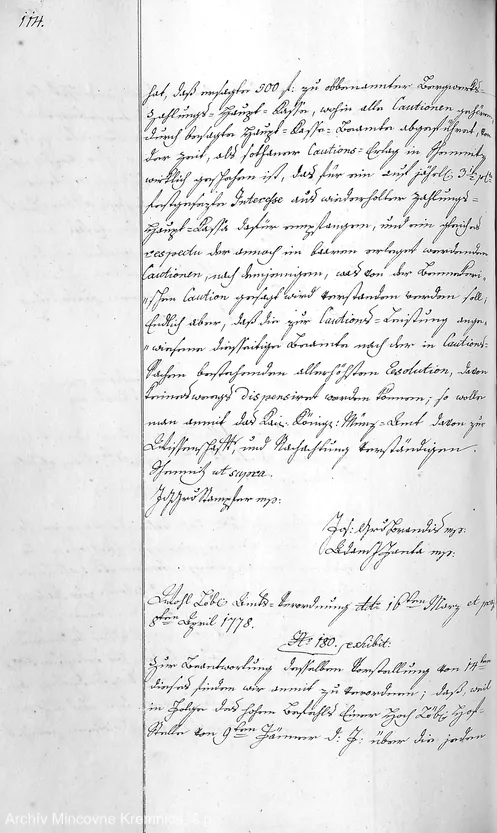 114.
hat, daß ersagte 500 f: zu obbenannter Bergwerks-
Zahlungs-Haupt-Kasse, wohin alle Cautionen gehören,
durch besagte Haupt-Kasse-Beamte abgeführet, von
der Zeit, als sothaner Cautions-Erlag in Schemnitz
wirklich geschehen ist, das für ein auf jährl:
festgesezte Interesse aus wiederholter Zahlungs-
Haupt-Kassa dafür empfangen, und ein gleiches
respectu der annoch im baaren erleget werdenden
Cautionen, nach demjenigen, was von der
Caution gesagt wird verstanden werden soll,
Endlich aber, daß die zur Cautions-Leistung ange-
wiesene diesseitige Beamte nach der in Cautions-
Sachen bestehenden allerhöchsten Resolution, davon
keineswegs dispensiret werden können; so wolle
man anmit das Kais: Königl: Münz-Amt davon zur
Wissenschaft, und Nachachtung verständigen.
Schemnitz ut supra.
Stampfer mp:
Jos:
mp:
Wohl Löbl: Amts-Verordnung dto 16ten Marz et
8ten April 1778.
No 180. exhibit:
Zur Beantwortung desselben Vorstellung von 14ten
dieses finden wir anmit zu verordnen; daß, weil
in Folge des hohen Befehls Einer Hoch Löbl: Hof-
Stelle von 9ten Jänner d: J: über die jeden
Archív Mincovne Kremnica, š.p.